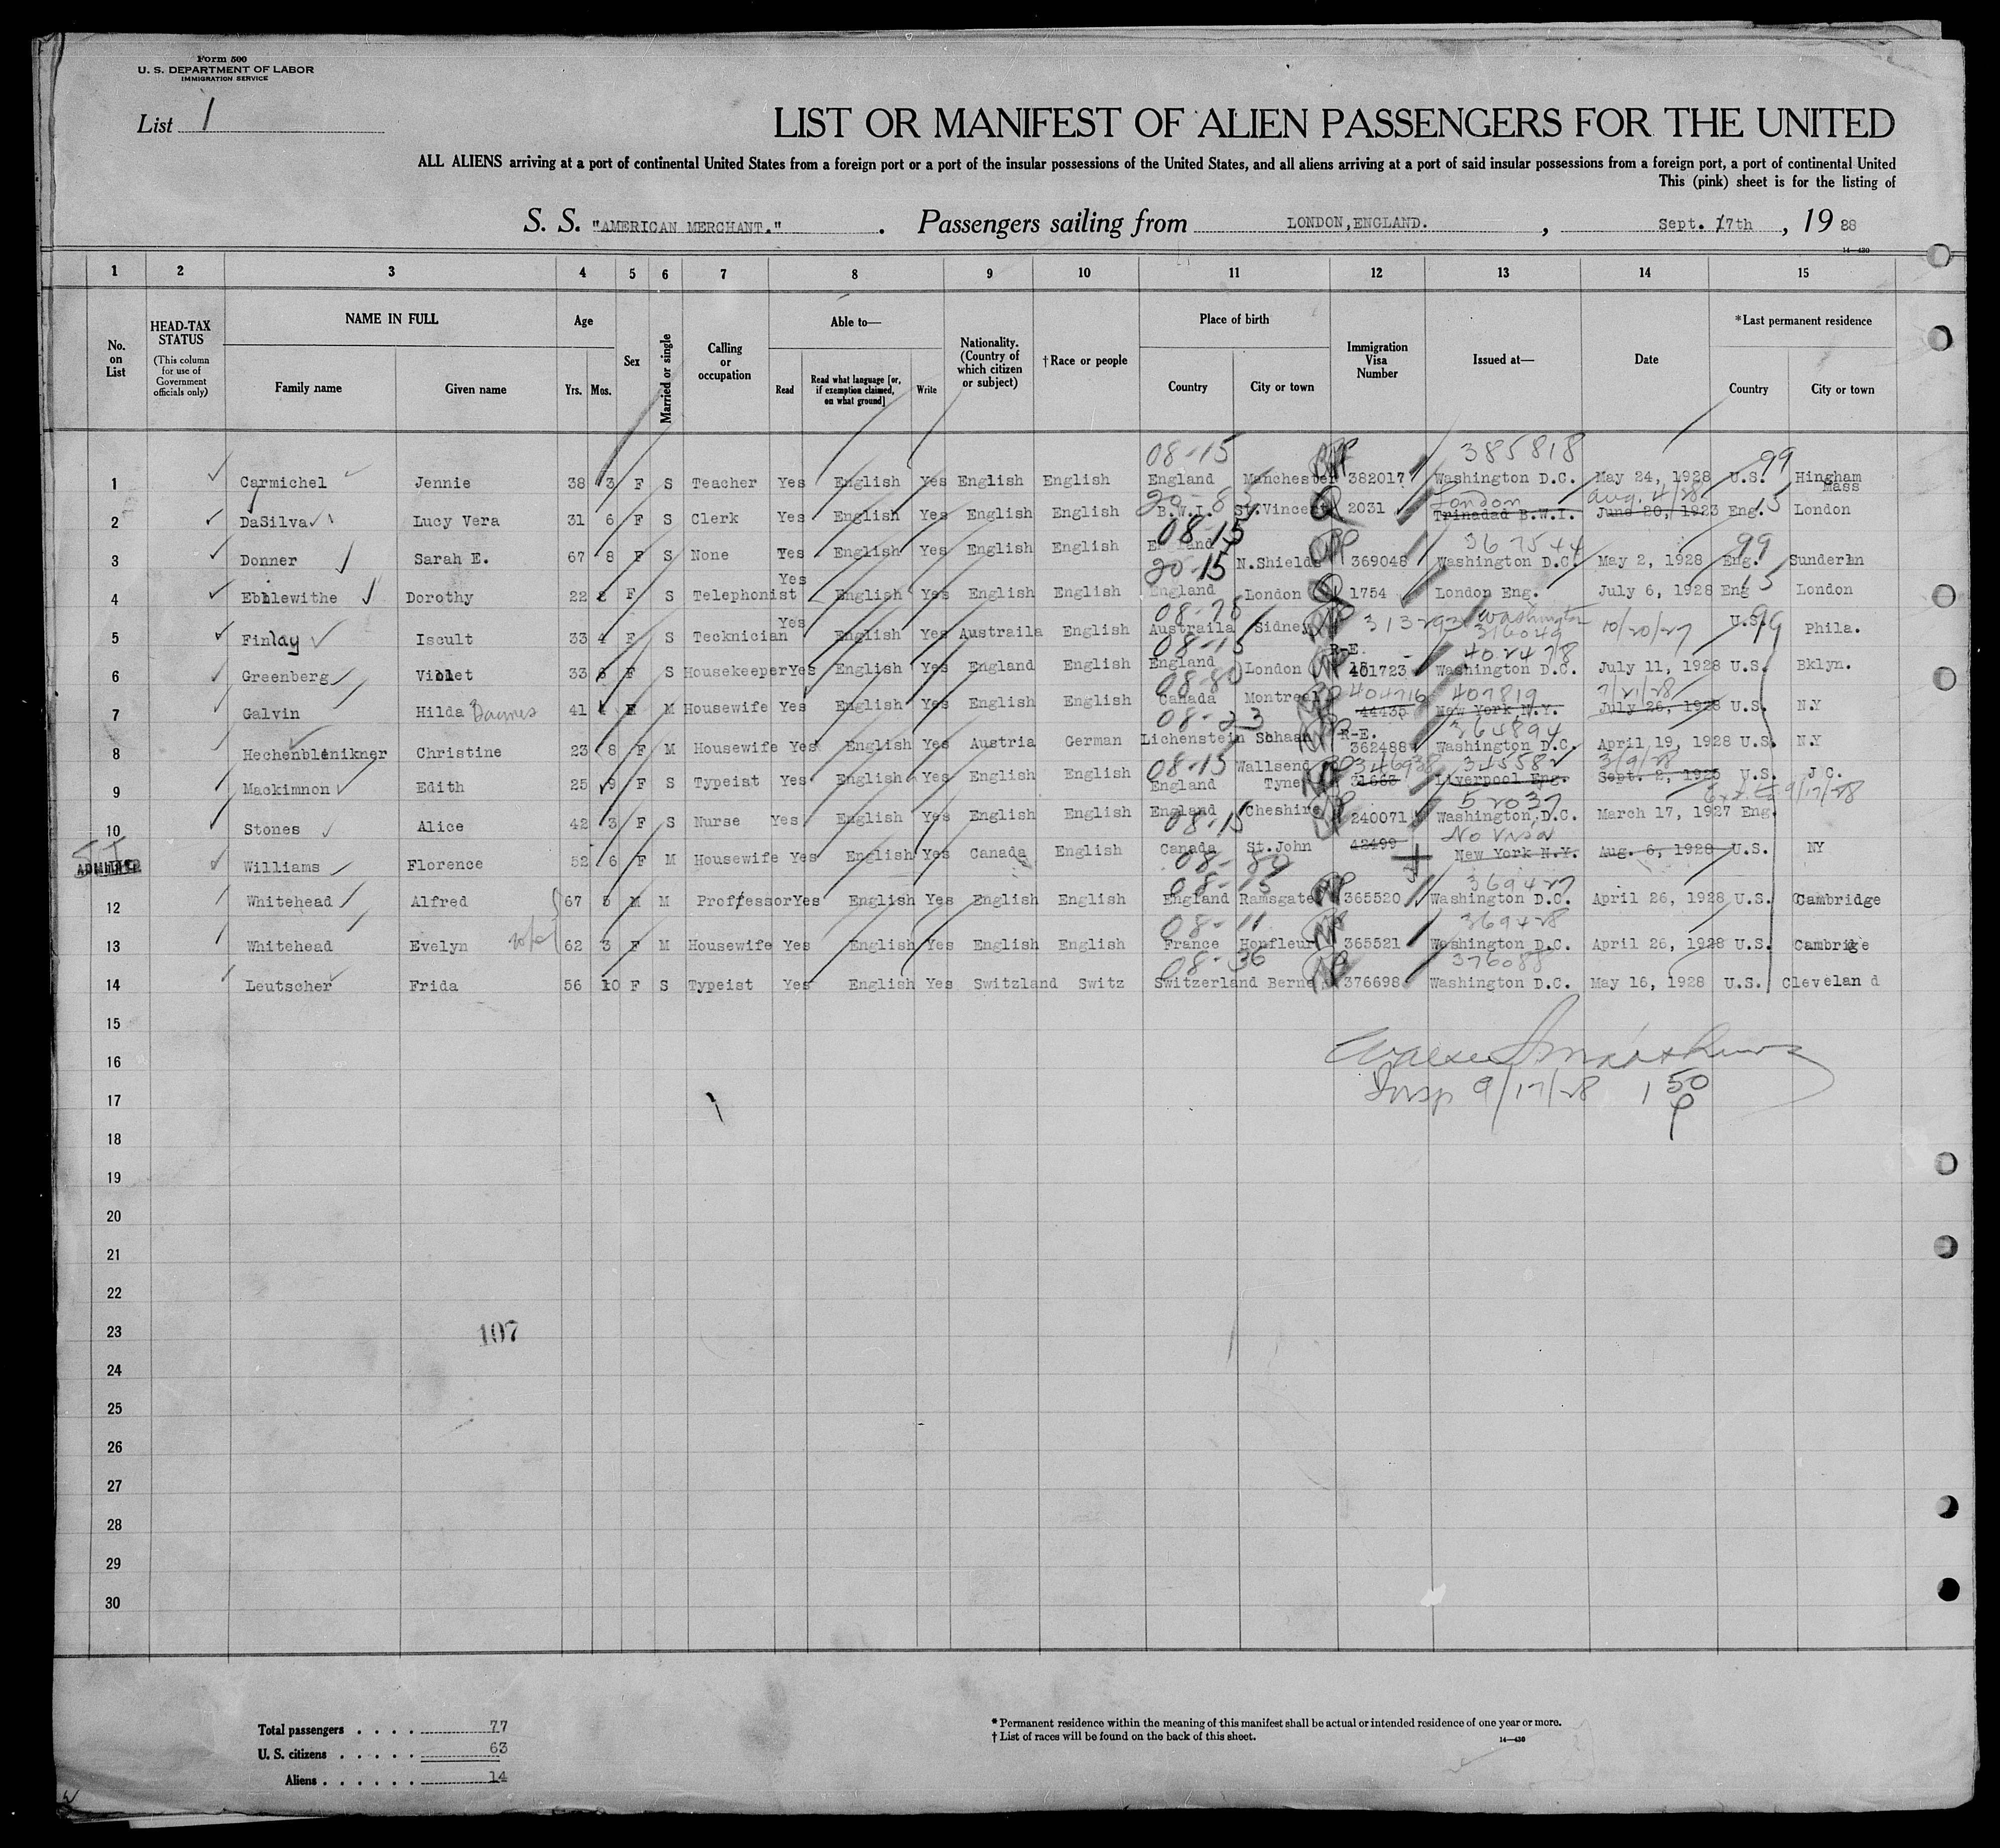 Form 500
U. S. DEPARTMENT OF LABOR
IMMIGRATION SERVICE
List 1
LIST OR MANIFEST OF ALIEN PASSENGERS FOR THE UNITED
ALL ALIENS arriving at a port of continental United States from a foreign port or a port of the insular possessions of the United States, and all aliens arriving at a port of said insular possessions from a foreign port, a port of continental United
This (pink) sheet is for the listing of
S. S. "AMERICAN MERCHANT." . Passengers sailing from LONDON,ENGLAND. , Sept. 17th , 19 28
14—430
1 2 3 4 5 6 7 8 9 10 11 12 13 14 15
No. on List
HEAD-TAX STATUS
(This column for use of Government officials only)
NAME IN FULL
Family name Given name
Age
Yrs. Mos.
Sex
Married or single
Calling or occupation
Able to—
Read
Read what language [or, if exemption claimed, on what ground]
Write
Nationality. (Country of which citizen or subject)
† Race or people
Place of birth
Country City or town
Immigration Visa Number
Issued at—
Date
* Last permanent residence
Country City or town
08-15 385818 99
1 Carmichel Jennie 38 3 F S Teacher Yes English Yes English English England Manchester 382017 Washington D.C. May 24, 1928 U.S. Hingham Mass
London Aug. 4/28 15
2 DaSilva Lucy Vera 31 6 F S Clerk Yes English Yes English English B.W.I. St.Vincent 2031 Trinadad B.W.I. June 20, 1923 Eng. London
08-15 367544 99
3 Donner Sarah E. 67 8 F S None Yes English Yes English English England N.Shields 369048 Washington D.C. May 2, 1928 Eng. Sunderln
20-15 15
4 Ebblewithe Dorothy 22 F S Telephonist Yes English Yes English English England London 1754 London Eng. July 6, 1928 Eng London
Washington 316049 99
5 Finlay Iscult 33 4 F S Tecknician Yes English Yes Austraila English Austraila Sidney 313293 10/20/27 U.S. Phila.
08-15 R-E. 402478
6 Greenberg Violet 33 6 F S Housekeeper Yes English Yes England English England London 401723 Washington D.C. July 11, 1928 U.S. Bklyn.
08-80 404716 407819 7/21/28
7 Galvin Hilda Baynes 41 F M Housewife Yes English Yes English English Canada Montreal 44435 New York N.Y. July 26, 1928 U.S. N.Y
08-23 R-E. 364894
8 Hechenblenikner Christine 23 8 F M Housewife Yes English Yes Austria German Lichenstein Schaan 362488 Washington D.C. April 19, 1928 U.S. N.Y
08-15 346938 345582 3/9/28
9 Mackimnon Edith 25 9 F S Typeist Yes English Yes English English England Wallsend Tyne 31663 Liverpool Eng. Sept. 2, 1925 U.S. J C.
52037 9/17/28
10 Stones Alice 42 3 F S Nurse Yes English Yes English English England Cheshire 240071 Washington D.C. March 17, 1927 Eng.
08-15 No Visa
ADMITTED Williams Florence 52 6 F M Housewife Yes English Yes Canada English Canada St.John 42499 New York N.Y. Aug. 6, 1928 U.S. NY
08-80
08-15 369427
12 Whitehead Alfred 67 5 M M Proffessor Yes English Yes English English England Ramsgate 365520 Washington D.C. April 26, 1928 U.S. Cambridge
08-11 369428
13 Whitehead Evelyn wife 62 3 F M Housewife Yes English Yes English English France Honfleur 365521 Washington D.C. April 26, 1928 U.S. Cambridge
08-36 376088
14 Leutscher Frida 56 10 F S Typeist Yes English Yes Switzland Switz Switzerland Berne 376698 Washington D.C. May 16, 1928 U.S. Clevelan d
15
16
Insp 9/17/28 1 50
17
18
19
20
21
22
23 107
24
25
26
27
28
29
30
Total passengers . . . . 77
U. S. citizens . . . . . 63
Aliens . . . . . . 14
* Permanent residence within the meaning of this manifest shall be actual or intended residence of one year or more.
† List of races will be found on the back of this sheet.
14—430